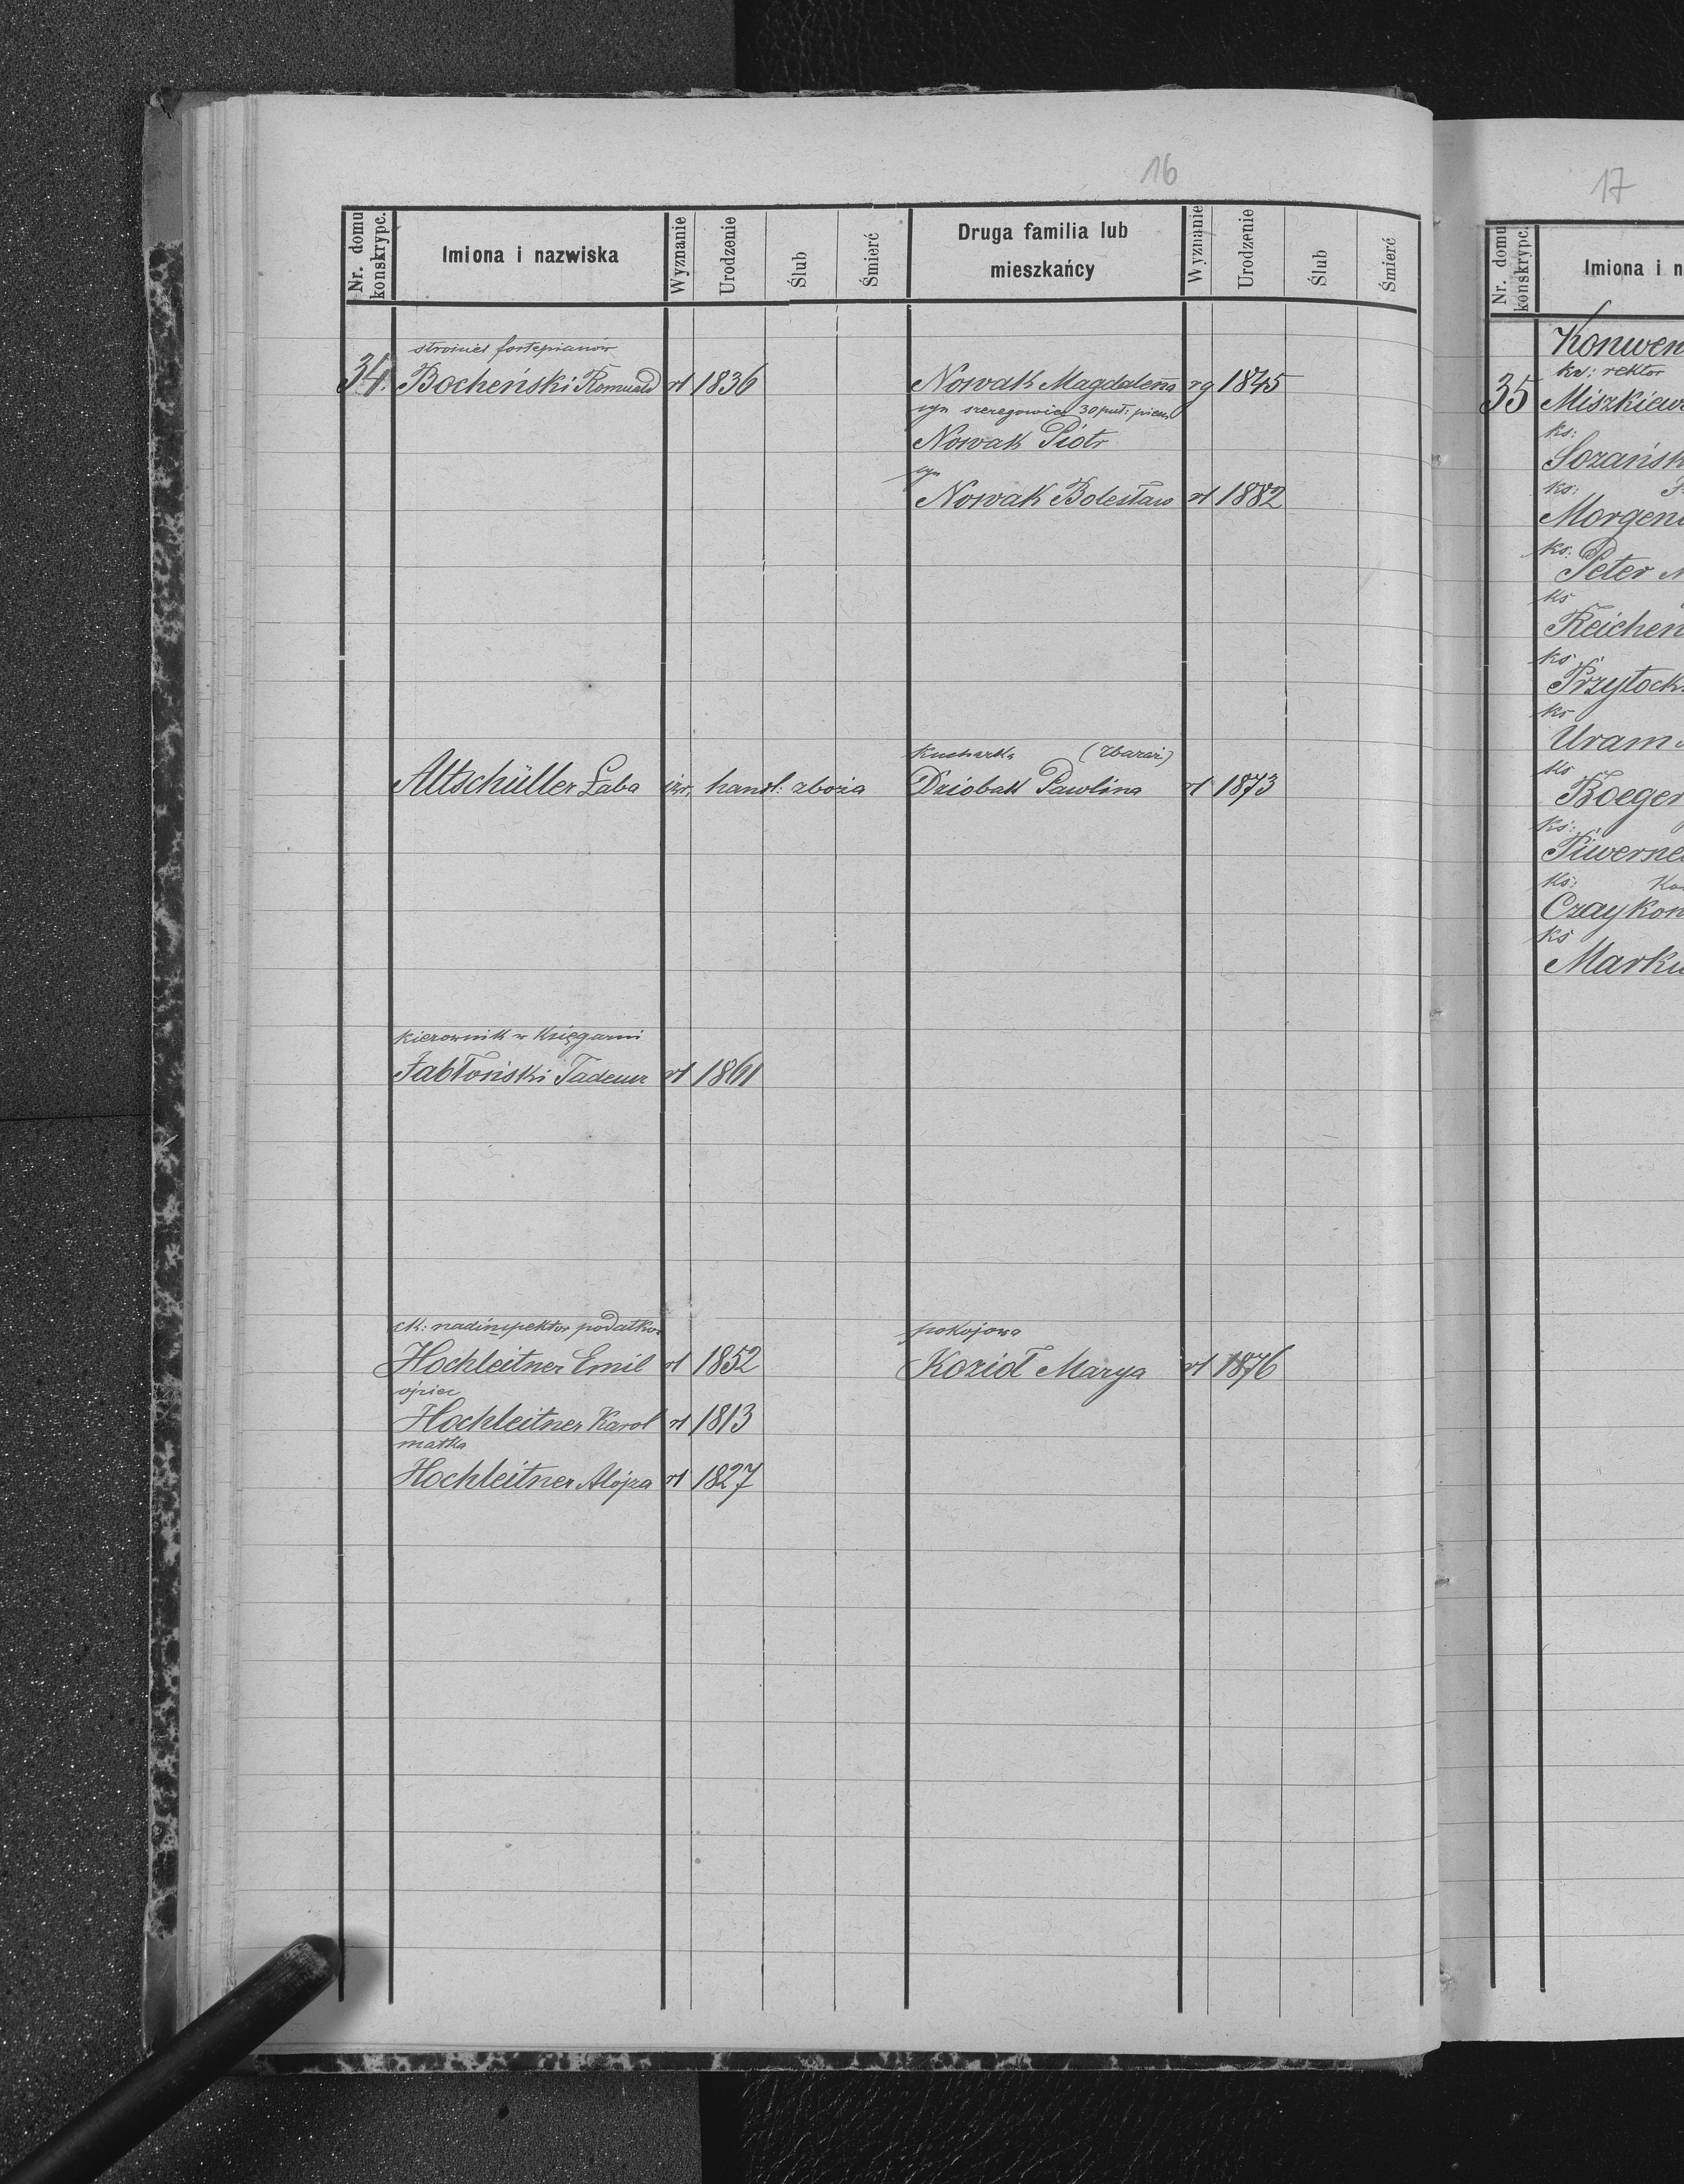 16
Nr. domu konskrypc.
Imiona i nazwiska
Wyznanie
Urodzenie
Ślub
Śmierć
Druga familia lub
mieszkańcy
Wyznanie
Urodzenie
Ślub
Śmierć
stroiciel fortepianów
34. Bocheński Romuald rł 1836
Nowak Magdalena rg 1845
syn szeregowiec 30 puł: piech
Nowak Piotr
syn
Nowak Bolesław rł 1882
Altschüller Laba izr. handl: zboża
Kucharka (Zbaraż)
Dziobak Pawlina rł 1873
kierownik w Księgarni
Jabłoński Tadeusz rł 1861
ck: nadinspektor podatkow
Hochleitner Emil rł 1852
ojciec
Hochleitner Karol rł 1813
matka
Hochleitner Alojza rł 1827
pokojowa
Kozioł Marya rł 1876
17
Nr. domu konskrypc.
Imiona i n
Konwen
ks: rektor
35 Miszkiew
ks:
Sozańsk
ks:
Morgen
ks:
Peter
ks
Reichen
ks
Przytock
ks
Uram
ks
Boeger
ks:
Piwerne
ks: Ka
Czaykow
ks
Marku